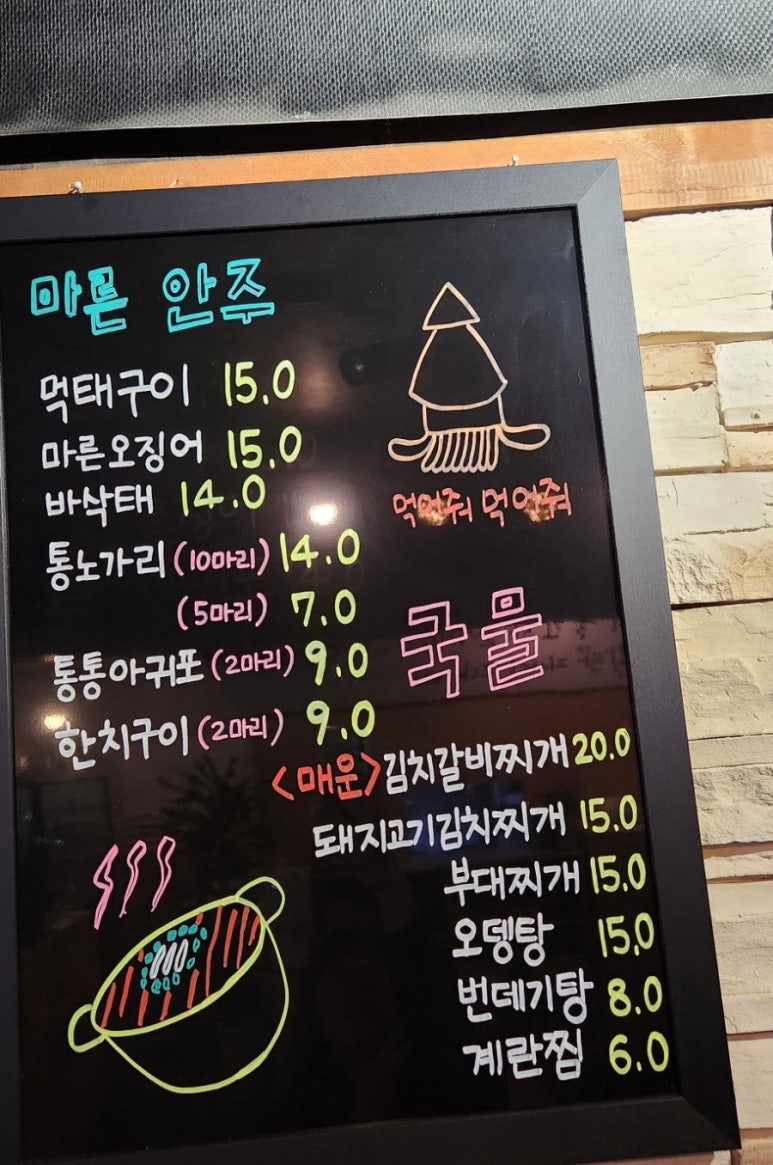 마른 안주
먹태구이 15.0
마른오징어 15.0
바삭태 14.0
통노가리 (10마리) 14.0
(5마리) 7.0
통통아귀포 (2마리) 9.0
한치구이 (2마리) 9.0
먹어줘 먹어줘
국물
<매운>김치갈비찌개 20.0
돼지고기김치찌개 15.0
부대찌개 15.0
오뎅탕 15.0
번데기탕 8.0
계란찜 6.0